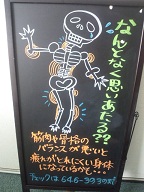 なんとなく思いあたる??
筋肉や骨格の
バランスが悪いと
疲れがとれにくい身体
になっているかと…
チェックは